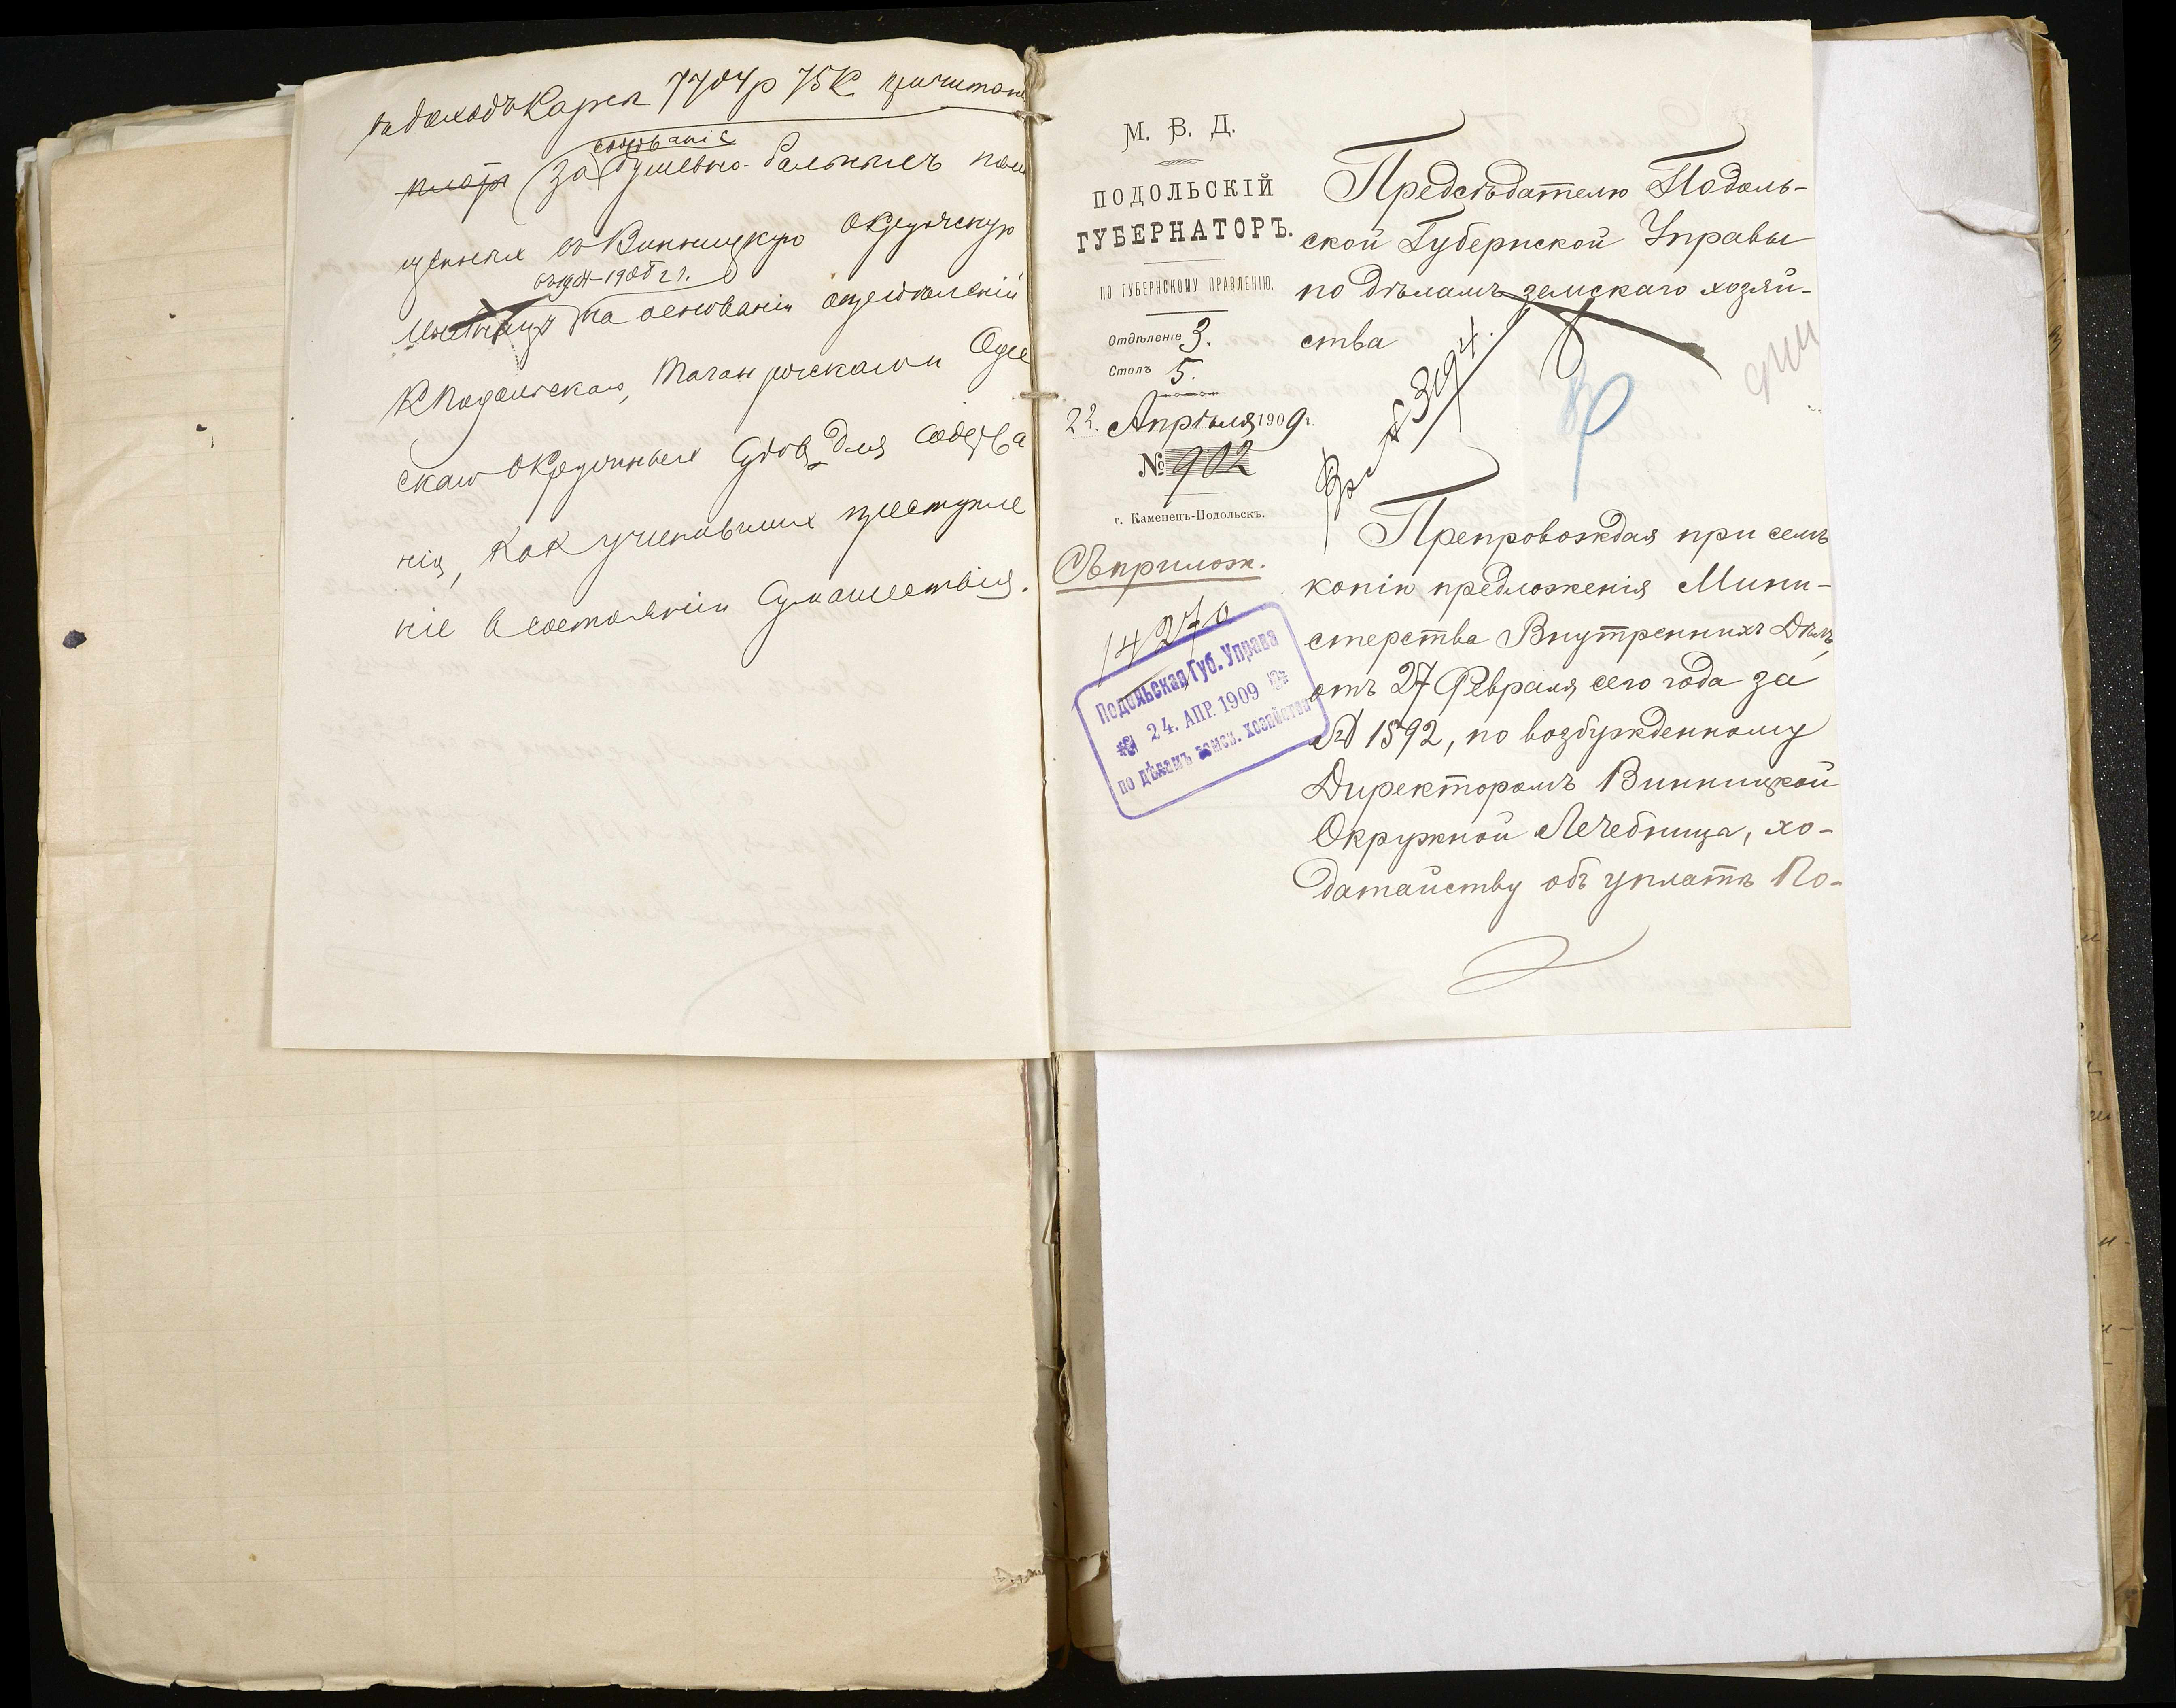 въ доходъ Казны 7704 р 75 К причитаю
плату за содержаніе душевно-больныхъ поме
щенныхъ въ Винницкую Окружную
въ 1904-1905 г г.
лечебницу на основаніи опредѣленій
КПодольскаго, Таганрогскаго и Одес
скаго Окружныхъ Судовъ для содержа
нія, как учинившихъ преступле
ніе в состояніи сумашествія.
М. В. Д.
ПОДОЛЬСКІЙ
ГУБЕРНАТОРЪ.
ПО ГУБЕРНСКОМУ ПРАВЛЕНІЮ.
Отдѣленіе 3.
Столъ 5.
22. Апрѣля 1909 г.
№ 902
г. Каменецъ-Подольскъ.
Съ прилож.
14270
Подольская Губ. Управа
24. АПР. 1909
по дѣламъ земск. хозяйства
Предсѣдателю Подоль-
ской Губернской Управы
по дѣламъ земскаго хозяй-
ства
3194.
Препровождая при семъ
копію предложенія Мини-
стерства Внутреннихъ Дѣлъ,
отъ 27 Февраля сего года за
№ 1592, по возбужденному
Директоромъ Винницкой
Окружной Лечебницы, хо-
датайству объ уплатѣ По-